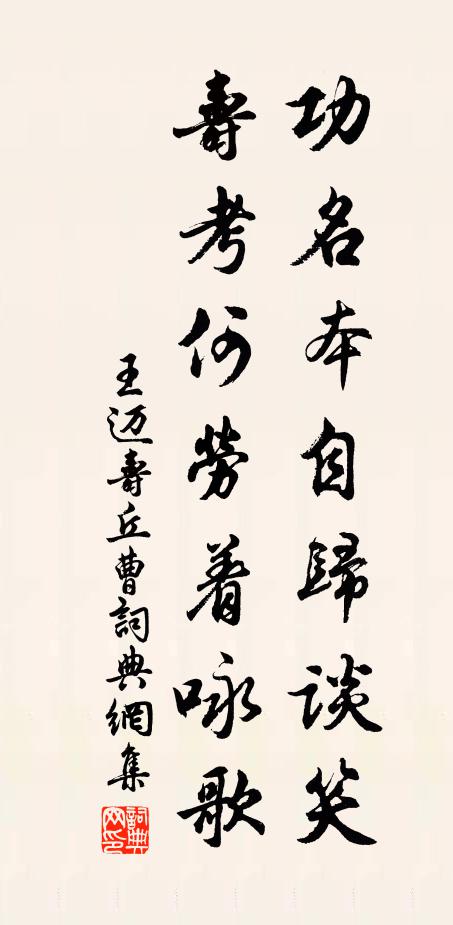 功名本自歸談笑
壽考何勞著咏歌
王迈壽丘曹詞典網集
詞典网印